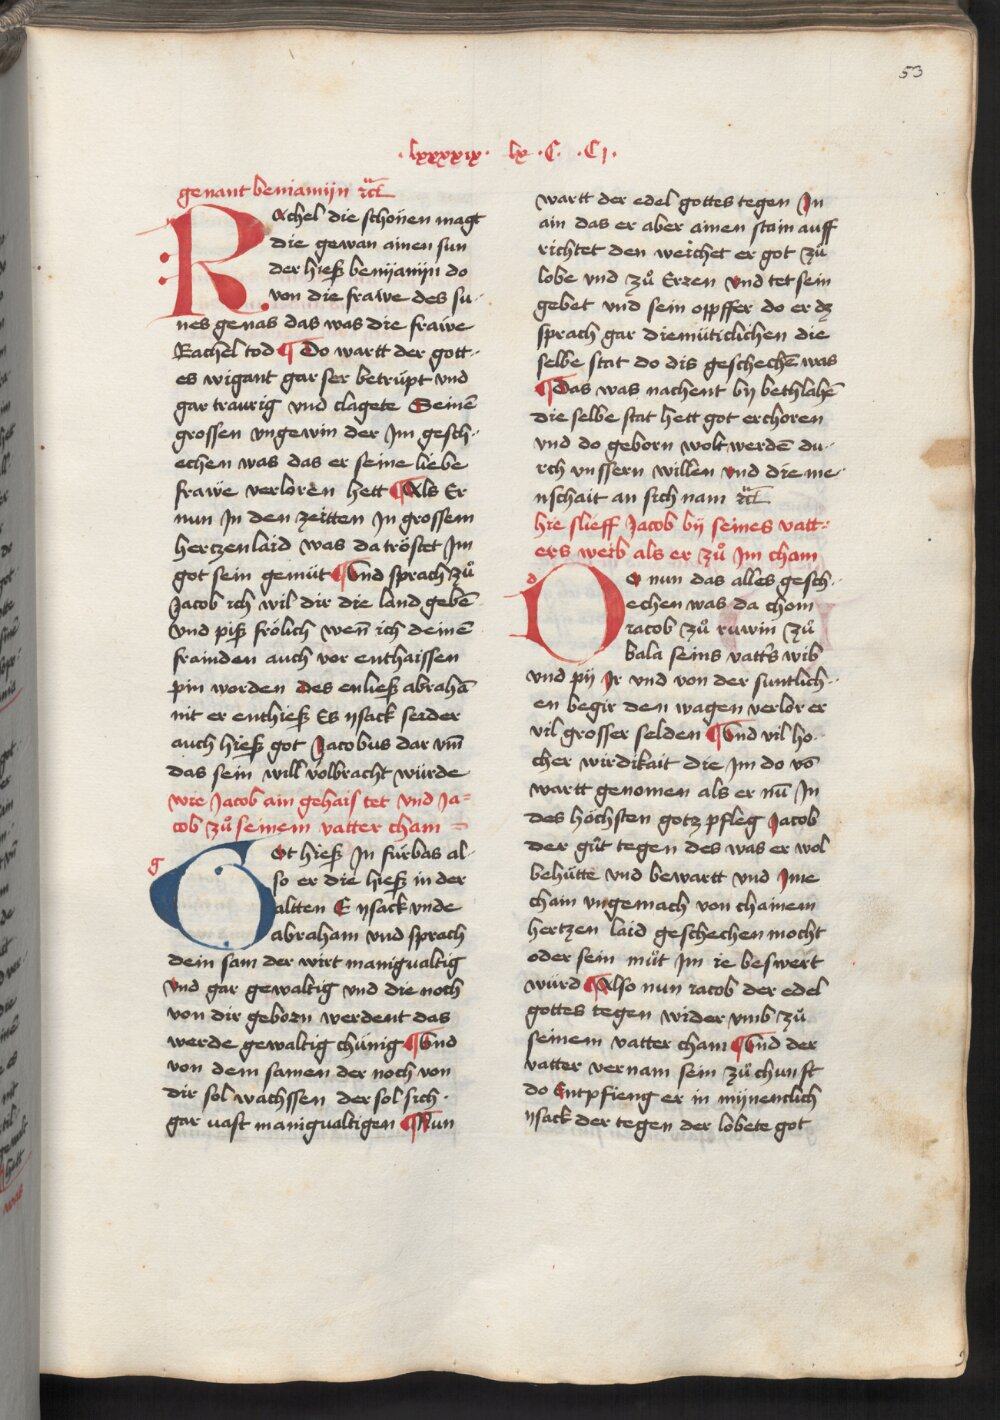 53
·lxxxxix· lx ·C· ·CI·
genant beniamÿn ꝛc̃
RAchel die schonen magt
die gewan ainen sun
der hieß benÿamÿn do
von die frawe des su-
nes genas das was die frawe
Rachel tod ¶ Do wartt der gott-
es wigant gar ser betrüpt vnd
gar traurig vnd clagete Seinē
grossen vngewin der Im gesch-
echen was das er seine liebe
frawe verloren hett ¶ Als Er
nun In den zeitten In grossem
hertzenlaid was da tröstet Im
got sein gemüt ¶ Vnd sprach zů
Jacob ich wil dir die land gebē
Vnd piß frölich wen̄ ich deinē
frainden auch vor enthaissen
pin worden des enließ abrahā
nit er enthieß Es ÿsack seider
auch hieß got Jacobus dar vm̄
das sein will volbracht würde
wie Jacob ain gehais tet vnd Ja=
cob zů seinem vatter cham
g
GOt hieß In fürbas al-
so er die hieß in der
altten E ÿsack vnde
abraham vnd sprach
dein sam der wirt manigualtig
Vnd gar gewaltig vnd die noch
von dir geborn werdent das
werde gewaltig chünig ¶ Vnd
von dem samen der noch von
dir sol wachssen der sol sich·
gar vast manigualtigen ¶ Nun
wartt der edel gottes tegen In
ain das er aber ainen stain auff
richtet den weichet er got zů
lobe vnd zů Erzen vnd tet sein
gebet vnd sein opffer do er dz
sprach gar diemüticlichen die
selbe stat do dis geschechē was
¶ Das was nachent bÿ bethlahē
die selbe stat hett got erchoren
vnd do geborn wolt werdē du-
rch vnssern willen vnd die me-
nschait an sich nam ꝛc̃
hie slieff Jacob bÿ seines vatt-
ers weib als er zů Im cham
d
DO nun das alles gesch-
echen was da chom
racob zů ruwin zů
bala seins vatt's wib
vnd pÿ Ir vnd von der suntlich-
en begir den wagen verlor er
vil grosser selden ¶ Vnd vil ho-
cher wirdikait die Im do vō
wartt genomen als er nū In
des höchsten gotz pfleg Jacob
der gůt tegen des was er wol
behütte vnd bewartt vnd Ime
chain vngemach von chainem
hertzen laid geschechen mocht
oder sein můt Im ie beswert
würd ¶ Also nun racob der edel
gottes tegen wider vmb zů
seinem vatter cham ¶ Vnd der
vatter vernam sein zůchunft
do Entpfieng er in mÿnenclich
ÿsack der tegen der lobete got